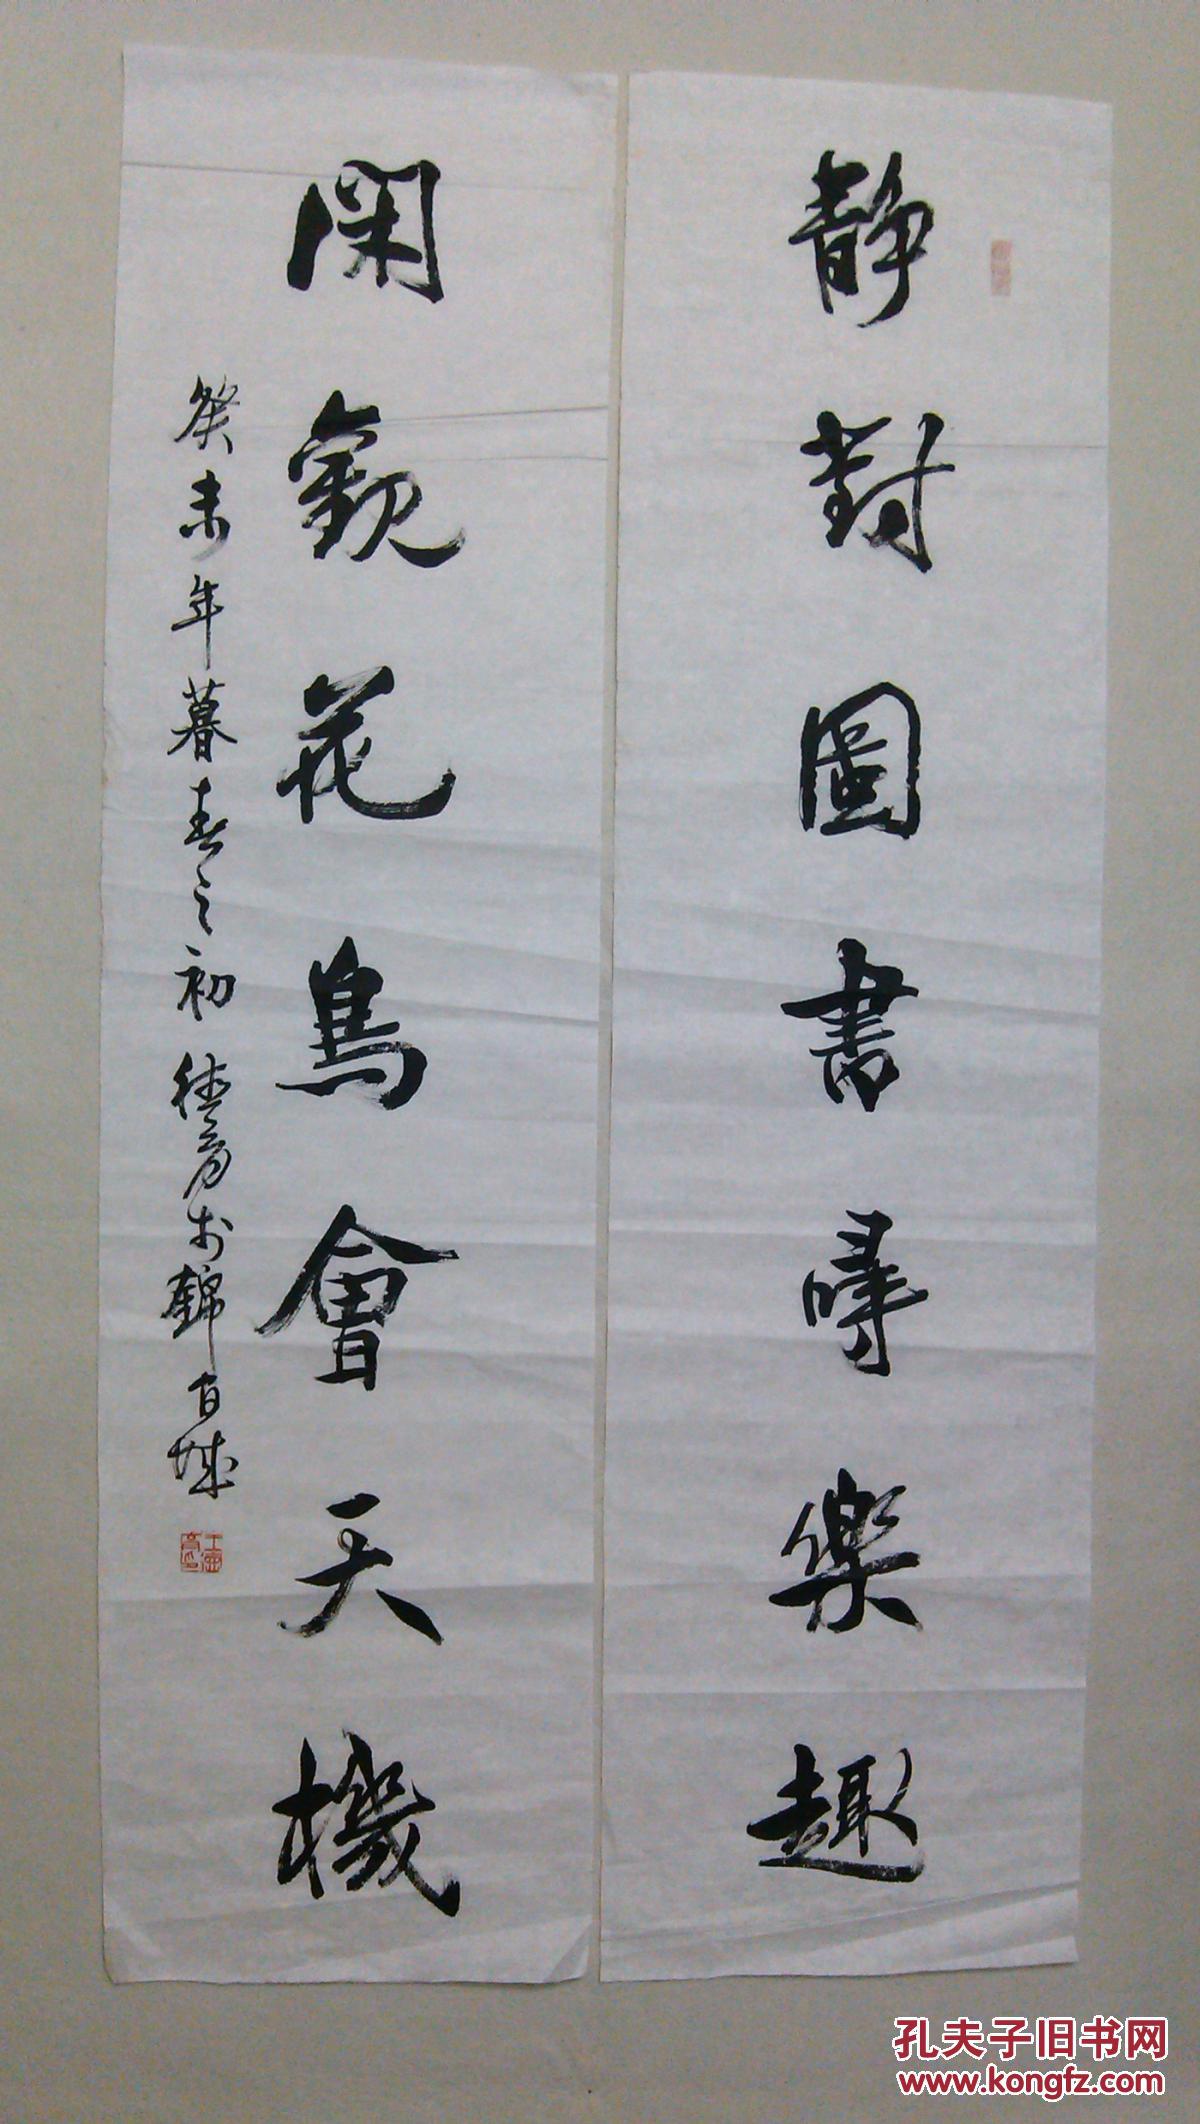 静對圖書尋樂趣
閑觀花鳥會天機
癸未年暮春之初
於錦官城
孔夫子旧书网
www.kongfz.com